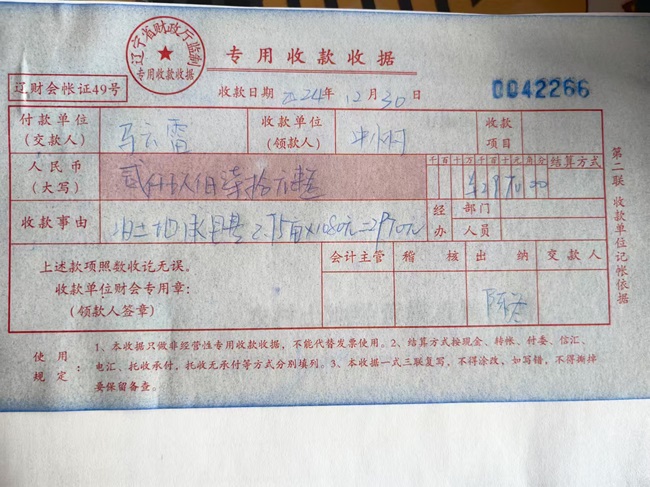 辽宁省财政厅监制
专用收款收据
专用收款收据
辽财会帐证49号
收款日期 2024年 12月 30日
0042266
付款单位
(交款人)
马云雷
收款单位
(领款人)
收款
项目
人民币
(大写)
贰仟玖佰柒拾元整
千百十万千百十元角分
结算方式
¥2970.00
收款事由
2.75亩×1080元=2970元
经办
部门
人员
上述款项照数收讫无误。
收款单位财会专用章:
(领款人签章)
会计主管
稽核
出纳
交款人
第二联 收款单位记帐依据
使用规定:
1、本收据只做非经营性专用收款收据,不能代替发票使用。2、结算方式按现金、转帐、付委、信汇、
电汇、托收承付,托收无承付等方式分别填列。3、本收据一式三联复写,不得涂改,如写错,不得撕掉
要保留备查。